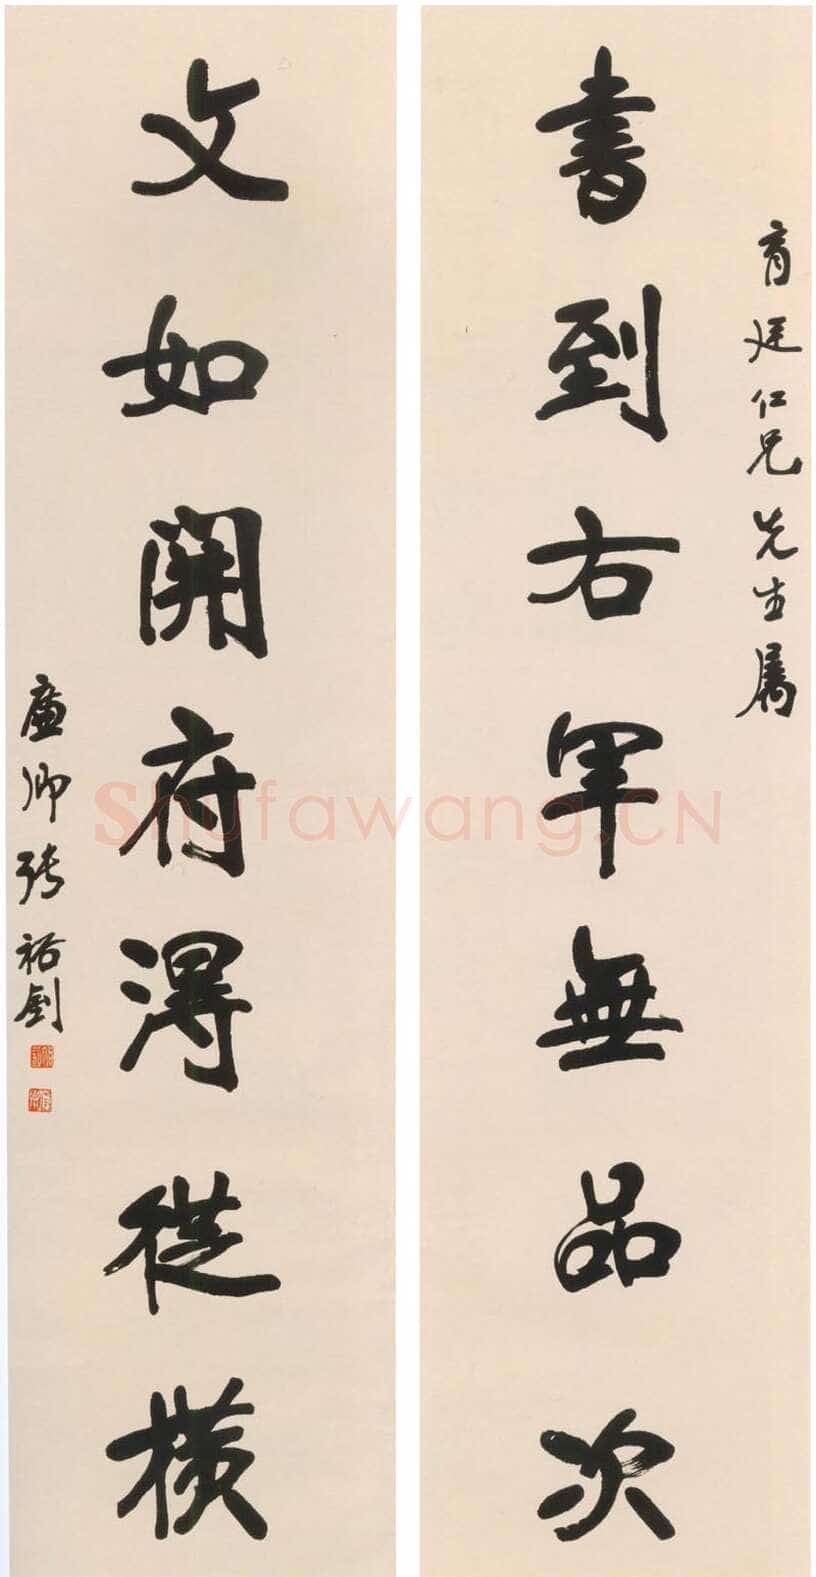 育廷仁兄先生属
書到右軍無品次
文如開府得從橫
廉卿張裕釗
Shufawang.CN